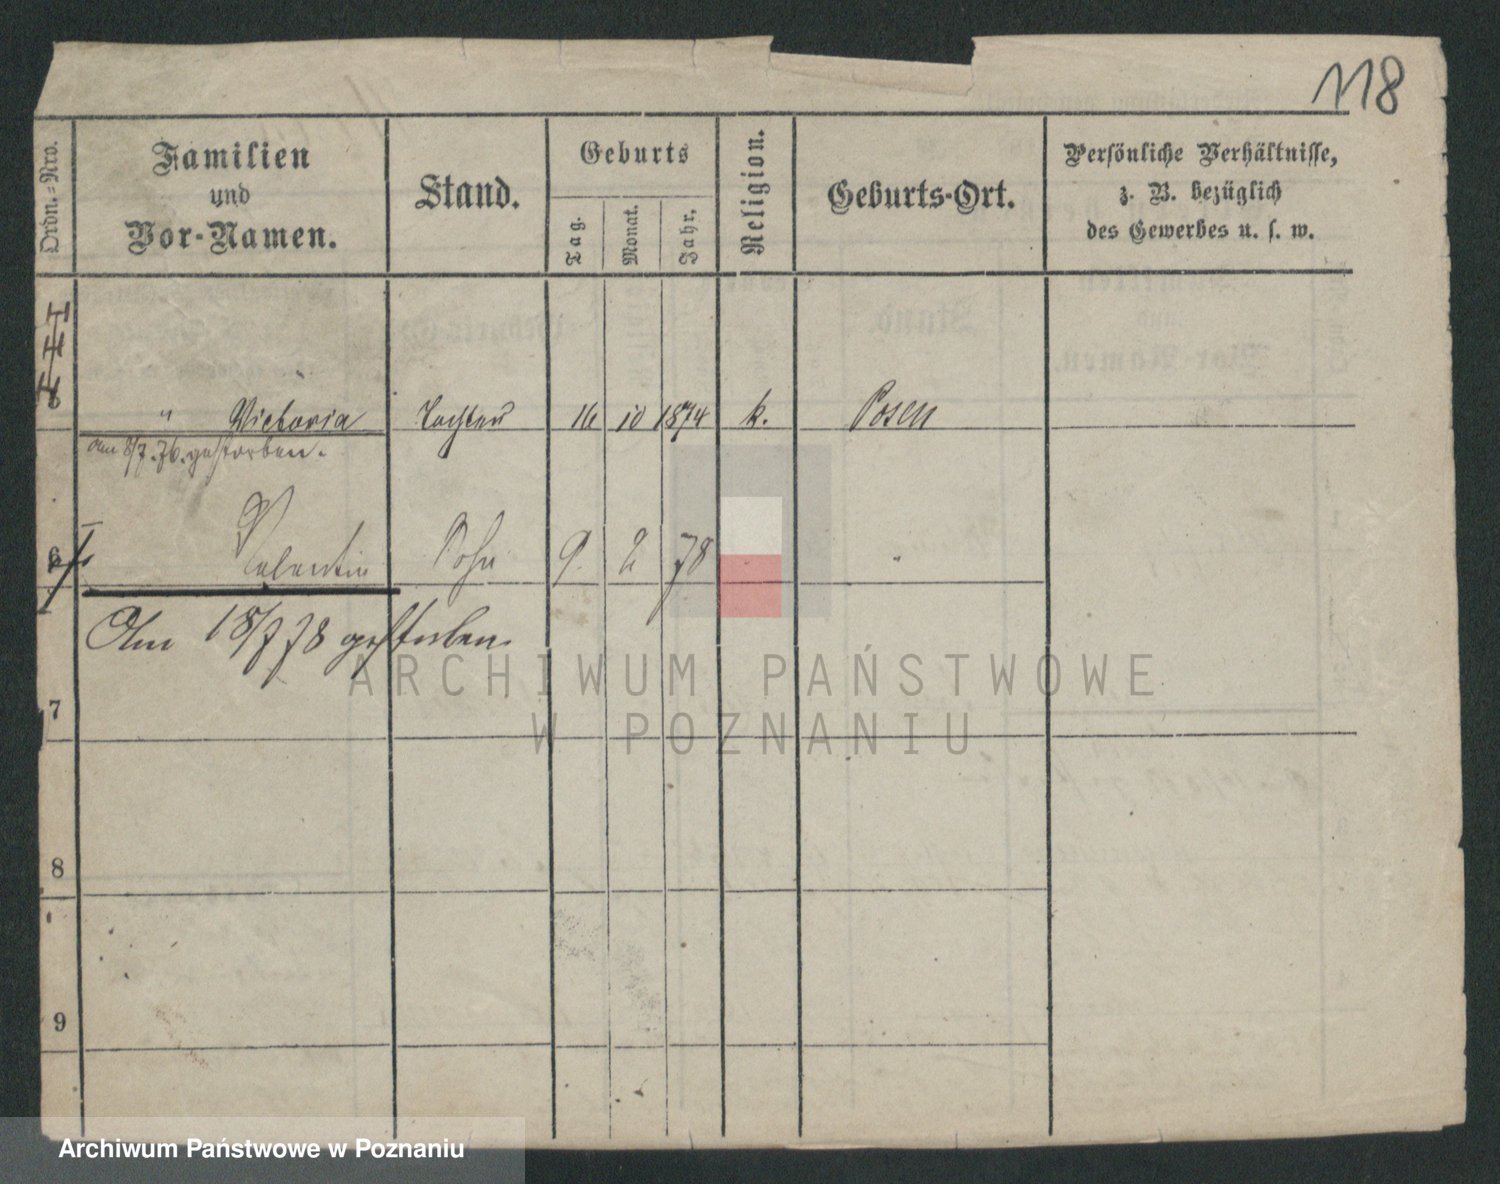 118
Ordn.-Nro.
Familien
und
Vor-Namen.
Stand.
Geburts
Tag.
Monat.
Jahr.
Religion.
Geburts-Ort.
Persönliche Verhältnisse,
z. B. bezüglich
des Gewerbes u. s. w.
5 " Victoria Tochter 16 10 1874 k. Posen
am 8/7.76. gestorben.
6 Valentin Sohn 9. 2 78 "
Am 18/7 78 gestorben
7
8
9
ARCHIWUM PAŃSTWOWE
W POZNANIU
Archiwum Państwowe w Poznaniu